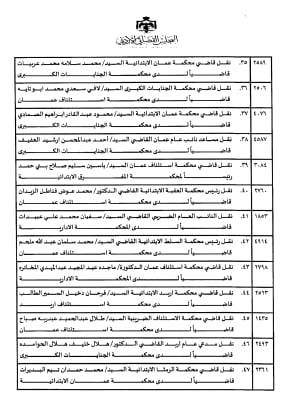 المجلس القضائي الأردني
٢٥٨٩ ٣٥. نقل قاضي محكمة عمان الابتدائية السيد/محمد سلامه محمد عربيات
قاضياً لدى محكمة الجنايات الكبرى
٢٥٠٦ ٣٦. نقل قاضي محكمة الجنايات الكبرى السيد/لافي سعدي محمد ابو تايه
قاضياً لدى محكمة استئناف عمان
٤٠٧٦ ٣٧. نقل قاضي محكمة عمان الابتدائية السيد/محمود عبد القادر ابراهيم الصمادي
قاضياً لدى محكمة الجنايات الكبرى
٤٥٨٧ ٣٨. نقل مساعد نائب عام عمان القاضي السيد/احمد عبد المحسن ارشيد العفيف
قاضياً لدى محكمة الجنايات الكبرى
٣٠٨٤ ٣٩. نقل قاضي محكمة استئناف عمان السيد/ياسين سليم صلاح بني حمد
رئيساً لمحكمة المفرق الابتدائية
٢٧٦٠ ٤٠. نقل رئيس محكمة العقبة الابتدائية القاضي الدكتور/محمد عوض فناطل الزيدان
قاضياً لدى محكمة استئناف عمان
١٨٥٣ ٤١. نقل النائب العام الضريبي القاضي السيد/سفيان محمد علي عبيدات
قاضياً لدى المحكمة الادارية
٤٩١٤ ٤٢. نقل رئيس محكمة السلط الابتدائية القاضي السيد/محمد سلمان عبد الله ملحم
قاضياً لدى محكمة استئناف عمان
٢٧٩٨ ٤٣. نقل قاضي محكمة استئناف عمان الدكتورة/ماجده عبد المجيد عبد المهدي
قاضياً لدى المحكمة الادارية
٢٥٦٣ ٤٤. نقل قاضي محكمة اربد الابتدائية السيد/فرحان دخيل السمير الطالب
قاضياً لدى محكمة استئناف اربد
١٤٣٥ ٤٥. نقل قاضي محكمة الاستئناف الضريبية السيد/طلال عبد الحميد عبد ربه صباح
قاضياً لدى محكمة استئناف عمان
٢٤٩٣ ٤٦. نقل مدعي عام اربد القاضي الدكتور/هلال خليف هلال الحوامده
قاضياً لدى محكمة الجنايات الكبرى
٢٣٦١ ٤٧. نقل قاضي محكمة الرمثا الابتدائية السيد/محمد حمدان نهار البديرات
قاضياً لدى محكمة عمان الابتدائية